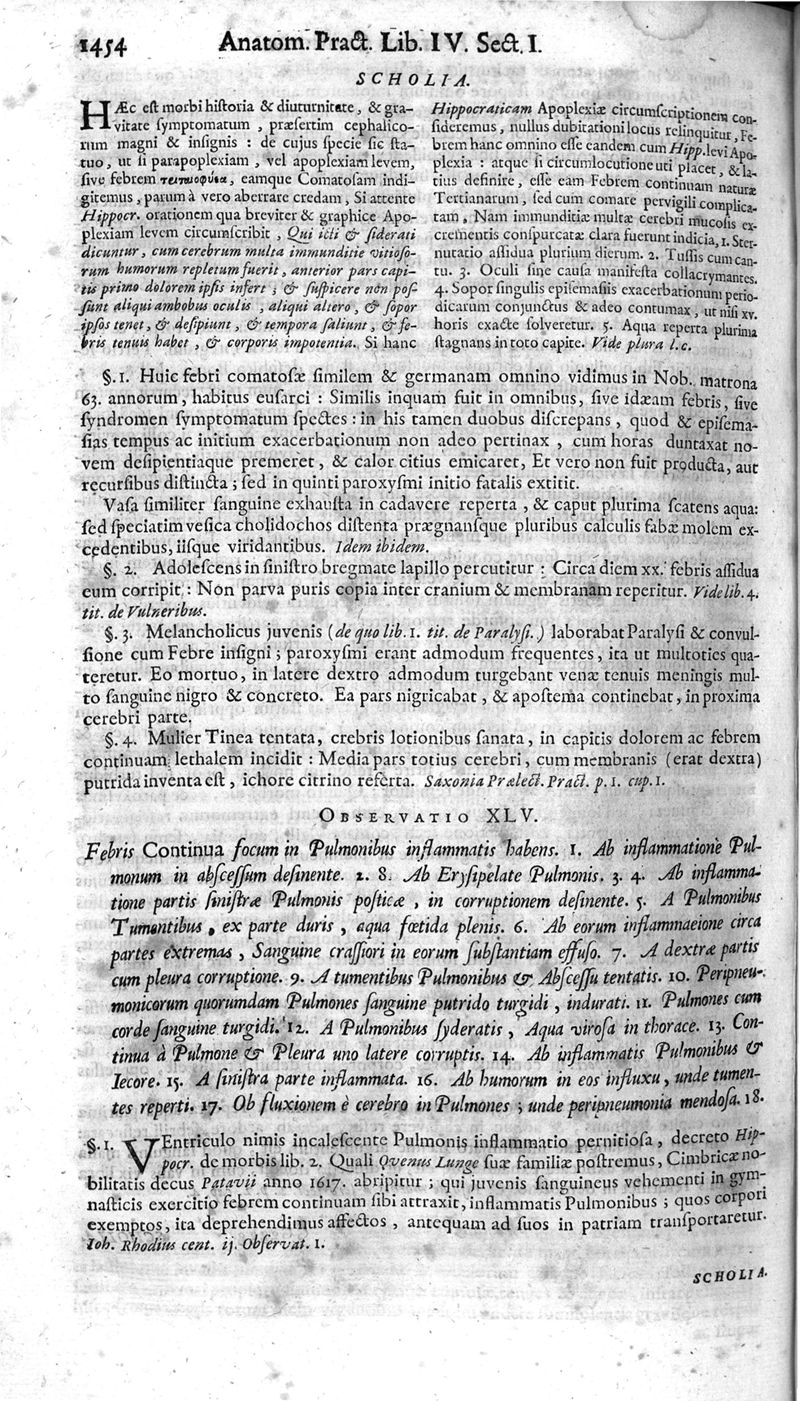 1454 Anatom. Pract. Lib. IV. Sect. I.
SCHOLIA.
HÆc eſt morbi hiſtoria & diuturnitate, & gra-
vitate ſymptomatum, præſertim cephalico-
rum magni & inſignis : de cujus ſpecie ſic ſta-
tuo, ut ſi parapoplexiam, vel apoplexiam levem,
ſive febrem eamque Comatoſam indi-
gitemus, parum à vero aberrare credam, Si attente
Hippocr. orationem qua breviter & graphice Apo-
plexiam levem circumſcribit, Qui icti & ſiderati
dicuntur, cum cerebrum multa immunditie vitioſo-
rum humorum repletum fuerit, anterior pars capi-
tis primo dolorem ipſis infert ; & ſuſpicere non poſ-
ſunt aliqui ambobus oculis, aliqui altero, & ſopor
ipſos tenet, & deſipiunt, & tempora ſaliunt, & fe-
bris tenuis habet, & corporis impotentia. Si hanc
Hippocraticam Apoplexiæ circumſcriptionem con-
ſideremus, nullus dubitationi locus relinquitur, Fe-
brem hanc omnino eſſe eandem cum Hipp. levi Apo-
plexia : atque ſi circumlocutione uti placet, & la-
tius definire, eſſe eam Febrem continuam naturæ
Tertianarum, ſed cum comate pervigili complica-
tam, Nam immunditiæ multæ cerebri mucoſis ex-
crementis conſpurcatæ clara fuerunt indicia, 1. Ster-
nutatio aſſidua plurium dierum. 2. Tuſſis cum can-
tu. 3. Oculi ſine cauſa manifeſta collacrymantes.
4. Sopor ſingulis epiſemaſiis exacerbationum perio-
dicarum conjunctus & adeo contumax, ut niſi xv.
horis exacte ſolveretur. 5. Aqua reperta plurima
ſtagnans in toto capite. Vide plura l. c.
§. 1. Huic febri comatoſæ ſimilem & germanam omnino vidimus in Nob. matrona
63. annorum, habitus euſarci : Similis inquam fuit in omnibus, ſive idæam febris, ſive
ſyndromen ſymptomatum ſpectes : in his tamen duobus diſcrepans, quod & epiſema-
ſias tempus ac initium exacerbationum non adeo pertinax, cum horas duntaxat no-
vem deſipientiaque premeret, & calor citius emicaret, Et vero non fuit producta, aut
recurſibus diſtincta ; ſed in quinti paroxyſmi initio fatalis extitit.
Vaſa ſimiliter ſanguine exhauſta in cadavere reperta, & caput plurima ſcatens aqua:
ſed ſpeciatim veſica cholidochos diſtenta prægnanſque pluribus calculis fabæ molem ex-
cedentibus, iiſque viridantibus. Idem ibidem.
§. 2. Adoleſcens in ſiniſtro bregmate lapillo percutitur : Circa diem xx. febris aſſidua
eum corripit : Non parva puris copia inter cranium & membranam reperitur. Vide lib. 4.
tit. de Vulneribus.
§. 3. Melancholicus juvenis (de quo lib. 1. tit. de Paralyſi.) laborabat Paralyſi & convul-
ſione cum Febre inſigni ; paroxyſmi erant admodum frequentes, ita ut multoties qua-
teretur. Eo mortuo, in latere dextro admodum turgebant venæ tenuis meningis mul-
to ſanguine nigro & concreto. Ea pars nigricabat, & apoſtema continebat, in proxima
cerebri parte.
§. 4. Mulier Tinea tentata, crebris lotionibus ſanata, in capitis dolorem ac febrem
continuam lethalem incidit : Media pars totius cerebri, cum membranis (erat dextra)
putrida inventa eſt, ichore citrino referta. Saxonia Prælect. Pract. p. 1. cap. 1.
OBSERVATIO XLV.
Febris Continua focum in Pulmonibus inflammatis habens. 1. Ab inflammatione Pul-
monum in abſceſſum deſinente. 2. 8. Ab Eryſipelate Pulmonis. 3. 4. Ab inflamma-
tione partis ſiniſtræ Pulmonis poſticæ, in corruptionem deſinente. 5. A Pulmonibus
Tumentibus, ex parte duris, aqua fœtida plenis. 6. Ab eorum inflammaeione circa
partes extremas, Sanguine craſſiori in eorum ſubſtantiam effuſo. 7. A dextræ partis
cum pleura corruptione. 9. A tumentibus Pulmonibus & Abſceſſu tentatis. 10. Peripneu-
monicorum quorumdam Pulmones ſanguine putrido turgidi, indurati. 11. Pulmones cum
corde ſanguine turgidi. 12. A Pulmonibus ſyderatis, Aqua viroſa in thorace. 13. Con-
tinua à Pulmone & Pleura uno latere corruptis. 14. Ab inflammatis Pulmonibus &
Iecore. 15. A ſiniſtra parte inflammata. 16. Ab humorum in eos influxu, unde tumen-
tes reperti. 17. Ob fluxionem è cerebro in Pulmones ; unde peripneumonia mendoſa. 18.
§. 1. VEntriculo nimis incaleſcente Pulmonis inflammatio pernitioſa, decreto Hip-
pocr. de morbis lib. 2. Quali Qvenus Lunge ſuæ familiæ poſtremus, Cimbricæ no-
bilitatis decus Patavii anno 1617. abripitur ; qui juvenis ſanguineus vehementi in gym-
naſticis exercitio febrem continuam ſibi attraxit, inflammatis Pulmonibus ; quos corpori
exemptos, ita deprehendimus affectos, antequam ad ſuos in patriam tranſportaretur.
Ioh. Rhodius cent. ij. Obſervat. 1.
SCHOLIA.